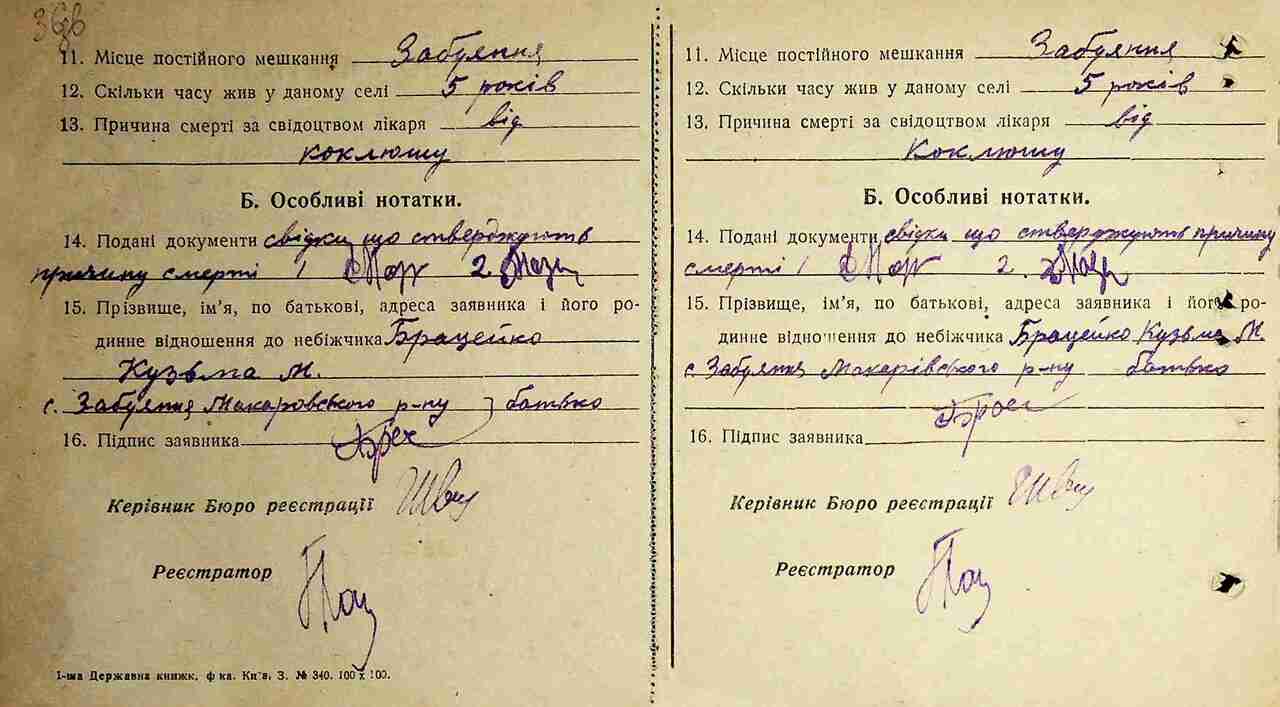 36зв
11. Місце постійного мешкання Забуяння
12. Скільки часу жив у даному селі 5 років
13. Причина смерті за свідоцтвом лікаря від
коклюшу
Б. Особливі нотатки.
14. Подані документи свідки що стверджують
причину смерті 1 2.
15. Прізвище, ім'я, по батькові, адреса заявника і його ро-
динне відношення до небіжчика Брацейко
Кузьма М.
с. Забуяння Макаровського р-ну батько
16. Підпис заявника
Керівник Бюро реєстрації
Реєстратор
1-ша Державна книжк. ф-ка. Київ, З. № 340. 100 х 100.
11. Місце постійного мешкання Забуяння
12. Скільки часу жив у даному селі 5 років
13. Причина смерті за свідоцтвом лікаря від
Коклюшу
Б. Особливі нотатки.
14. Подані документи свідки що стверджують причину
смерті 1 2.
15. Прізвище, ім'я, по батькові, адреса заявника і його ро-
динне відношення до небіжчика Брацейко Кузьма М.
с. Забуяння Макарівського р-ну батько
16. Підпис заявника
Керівник Бюро реєстрації
Реєстратор